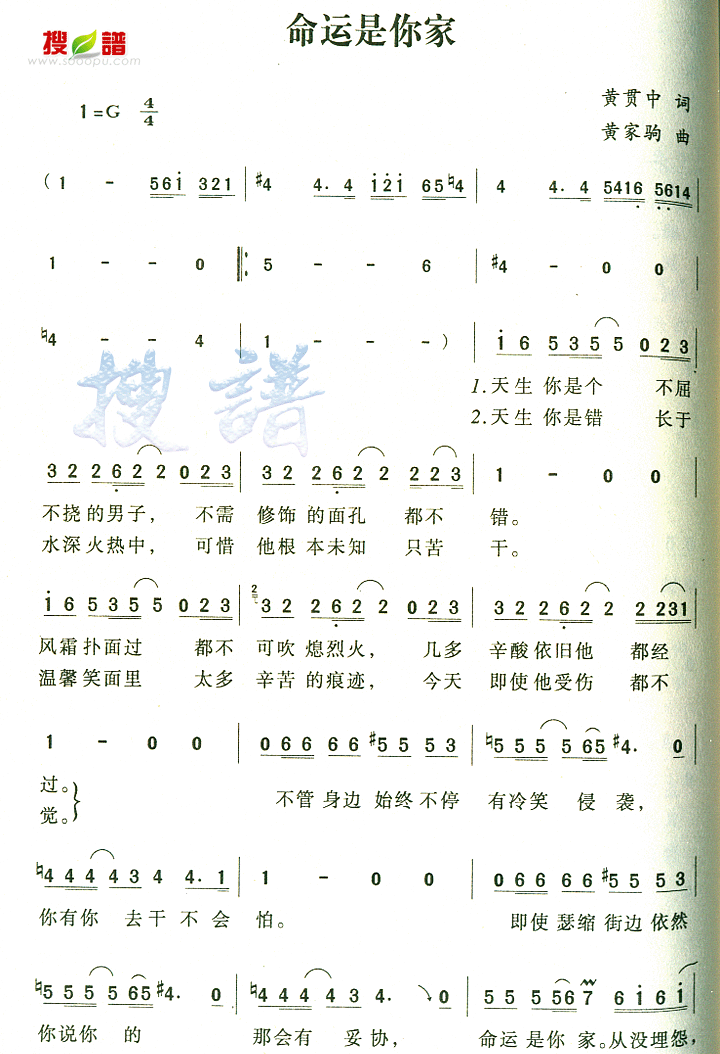 搜 譜
www.sooopu.com
命运是你家
黄贯中 词
1=G 4/4
黄家驹 曲
(1 - 561 321 | #4 4. 4 121 65♮4 | 4 4. 4 5416 5614 |
1 - - 0 ‖: 5 - - 6 | #4 - 0 0 |
♮4 - - 4 | 1 - - - ) | 16 5355 0 023 |
搜 譜
1.天生 你是个 不屈
2.天生 你是错 长于
32 2622 023 | 32 262 2 223 | 1 - 0 0 |
不挠的男子， 不需 修饰的面孔 都不 错。
水深火热中， 可惜 他根本未知 只苦 干。
16 5355 023 | 2 32 262 2 023 | 32 262 2 2231 |
风霜扑面过 都不 可吹熄烈火， 几多 辛酸依旧他 都经
温馨笑面里 太多 辛苦的痕迹， 今天 即使他受伤 都不
1 - 0 0 | 066 66 #55 53 | ♮555 5 565 #4. 0 |
过。
不管身边 始终不停 有冷笑 侵 袭，
觉。
♮444434 4.1 | 1 - 0 0 | 066 66 #55 53 |
你有你 去干不会 怕。 即使瑟缩街边依然
♮555 565 #4. 0 | ♮4444 34. 0 | 555 567 616 1 |
你说你 的 那会有 妥协， 命运是你 家。从没埋怨，